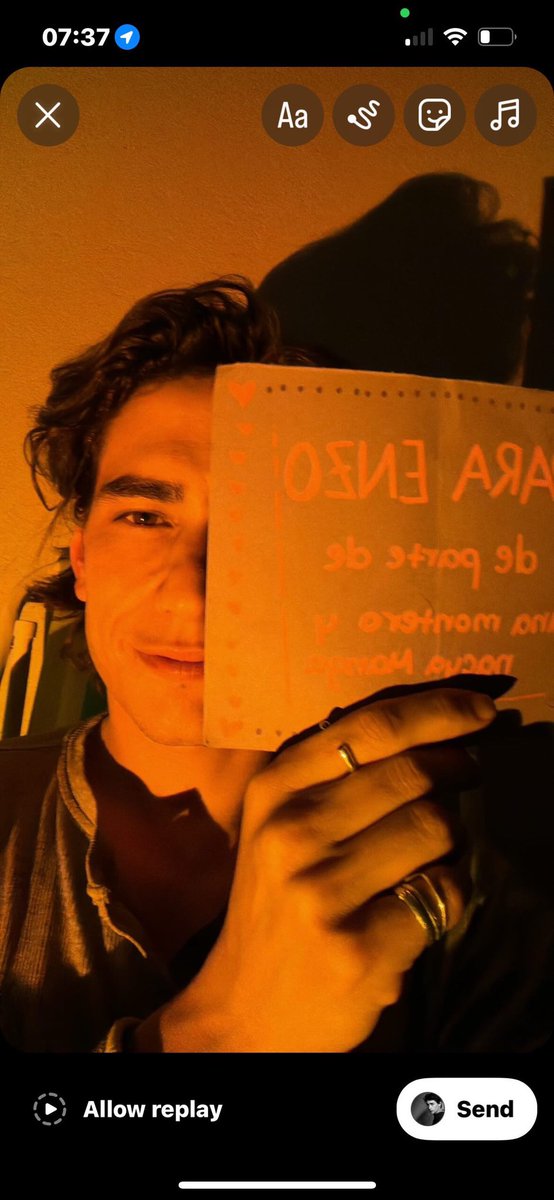 07:37
Aa
ARA ENZO
de parte de
montero y
Allow replay
Send